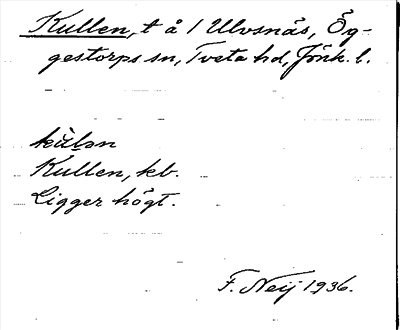 Kullen, t å 1 Ulvsnäs, Ög-
gestorps sn, Tveta hd, Jönk. l.
Kullen, kb.
Ligger högt.
F. Neij 1936.